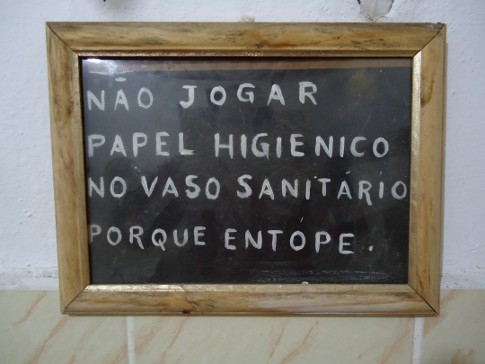 NÃO JOGAR
PAPEL HIGIENICO
NO VASO SANITÁRIO
PORQUE ENTÓPE.